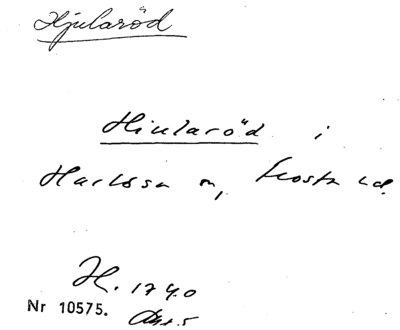 Hjularöd
Hiularöd i
Harlösa sn, Frosta hd.
H. 1740
Nr 10575.